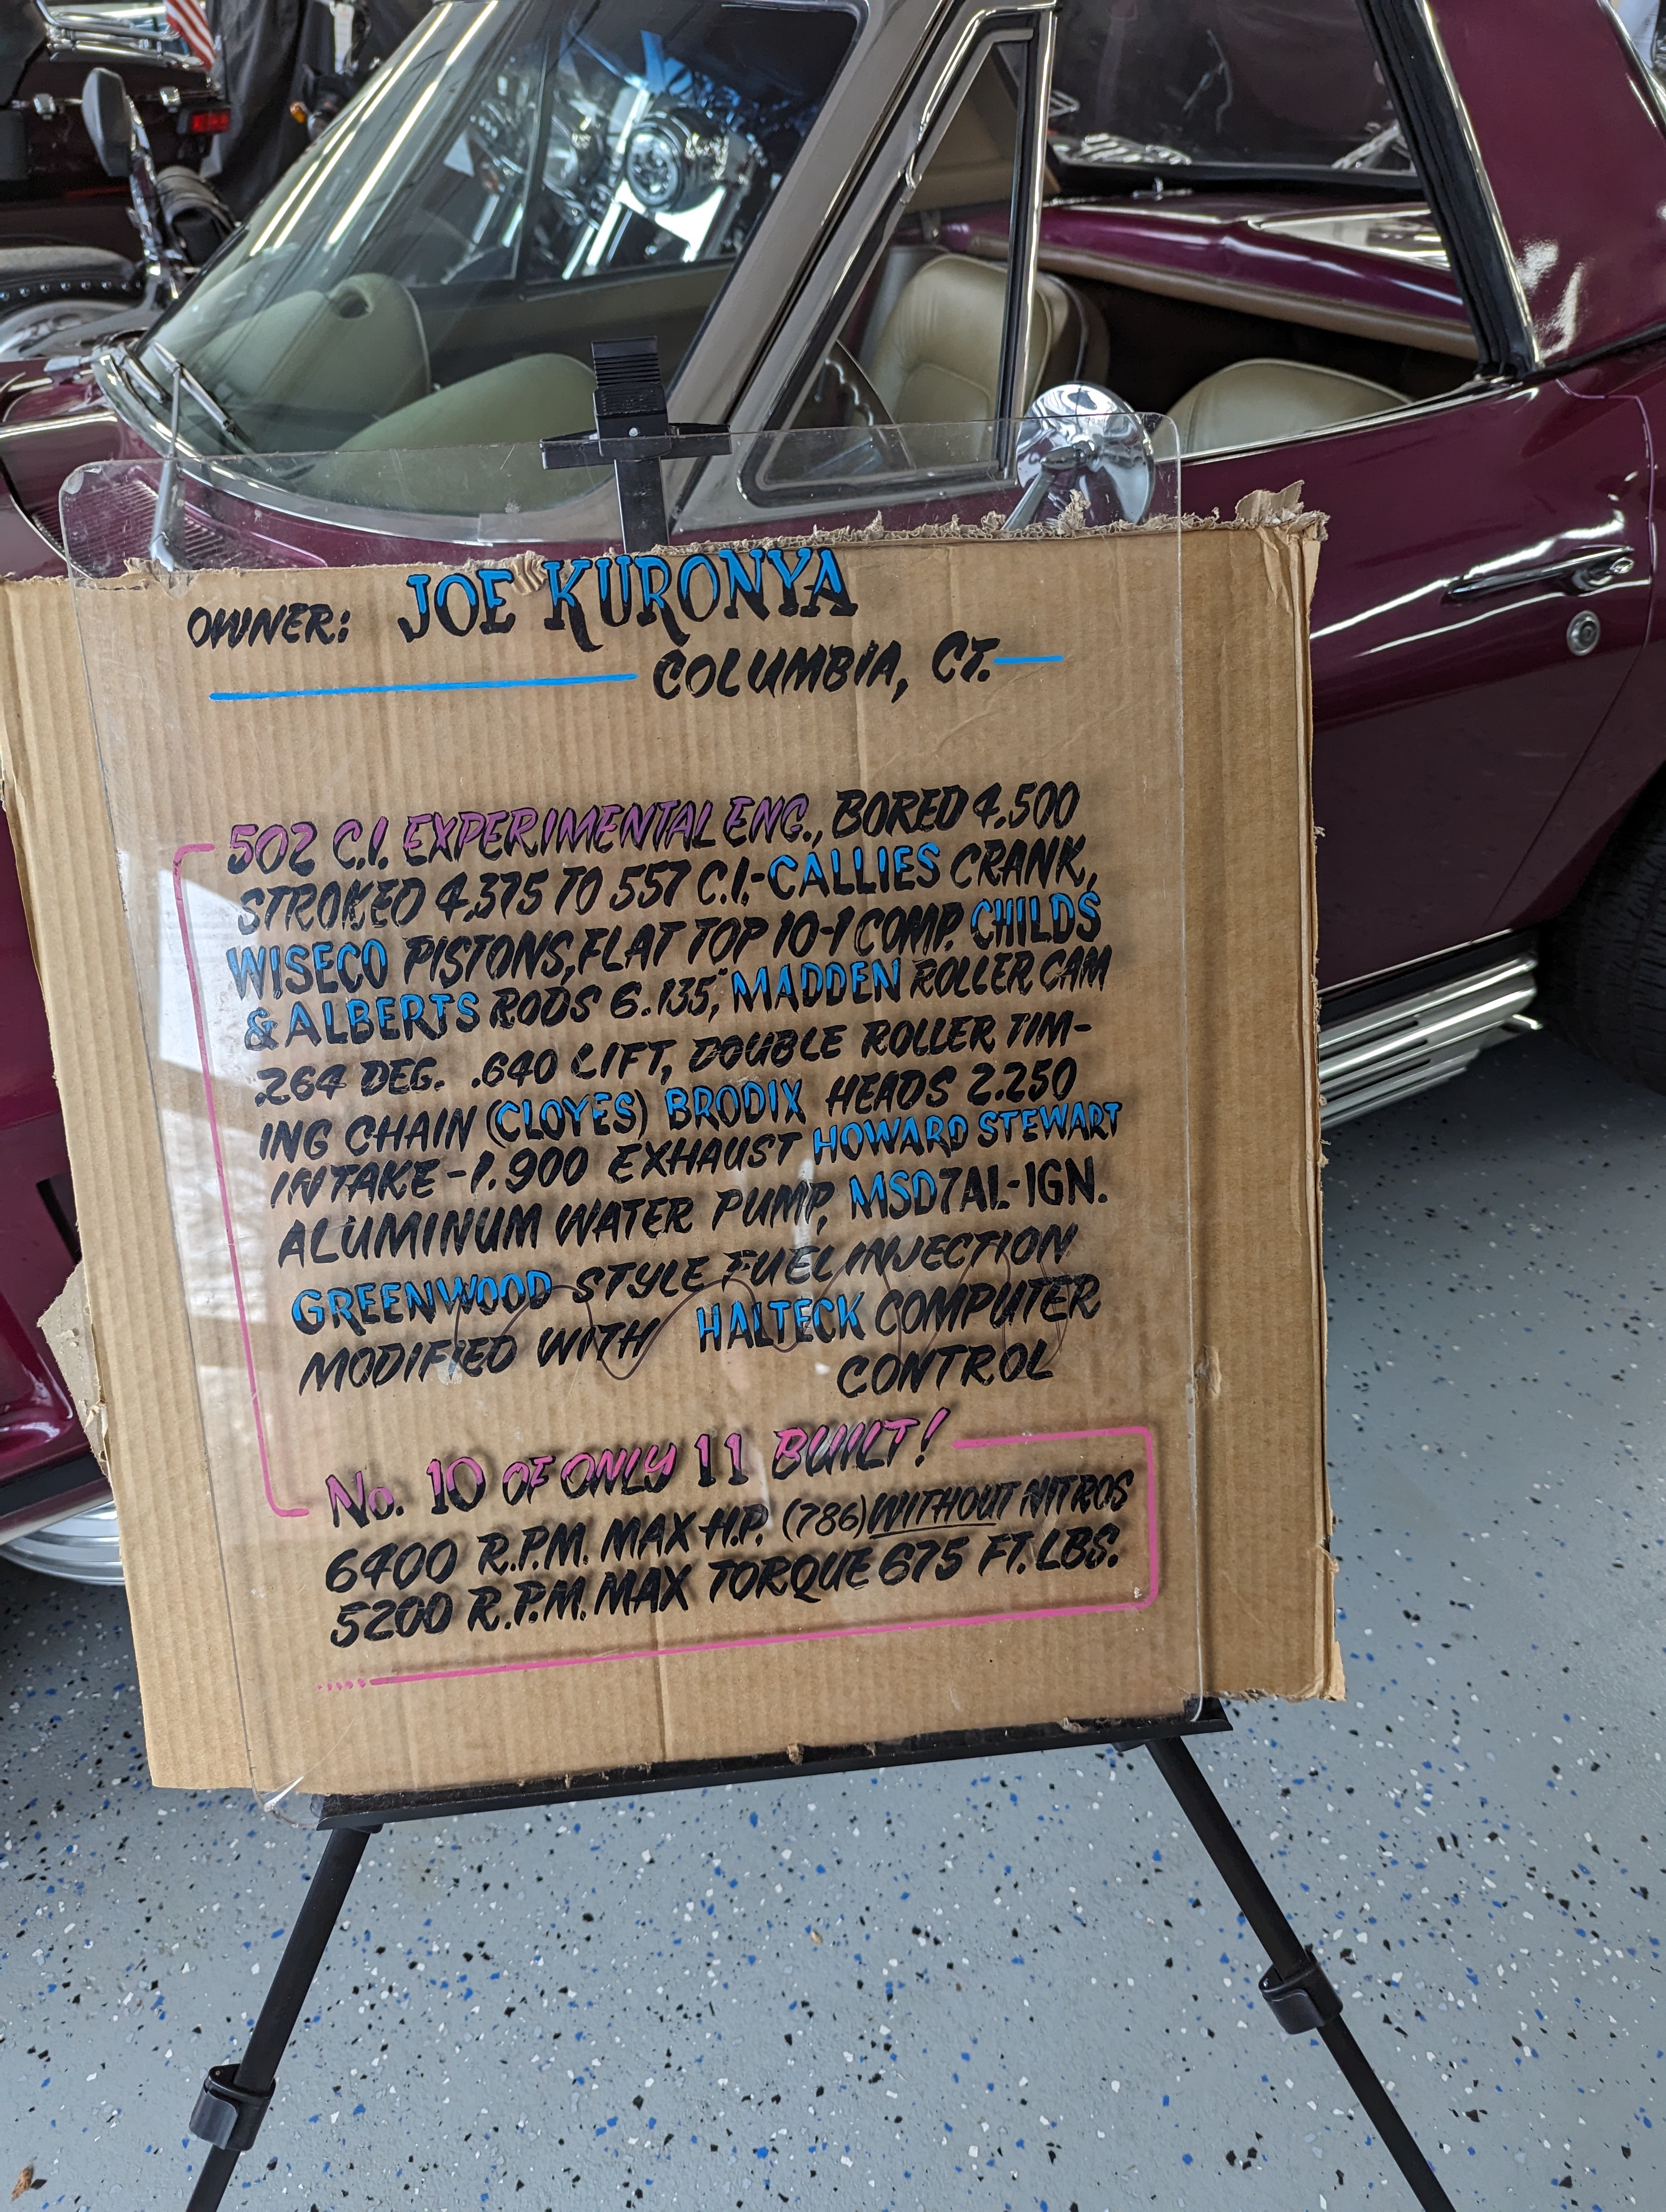 OWNER: JOE KURONYA
COLUMBIA, CT.
502 C.I. EXPERIMENTAL ENG., BORED 4.500
STROKED 4.375 TO 557 C.I.-CALLIES CRANK,
WISECO PISTONS, FLAT TOP 10-1 COMP. CHILDS
& ALBERTS RODS 6.135," MADDEN ROLLER CAM
264 DEG. .640 LIFT, DOUBLE ROLLER TIM-
ING CHAIN (CLOYES) BRODIX HEADS 2.250
INTAKE-1.900 EXHAUST HOWARD STEWART
ALUMINUM WATER PUMP, MSD7AL-IGN.
GREENWOOD STYLE FUEL INJECTION
MODIFIED WITH HALTECK COMPUTER
CONTROL
No. 10 OF ONLY 11 BUILT!
6400 R.P.M. MAX H.P. (786) WITHOUT NITROS
5200 R.P.M. MAX TORQUE 675 FT. LBS.